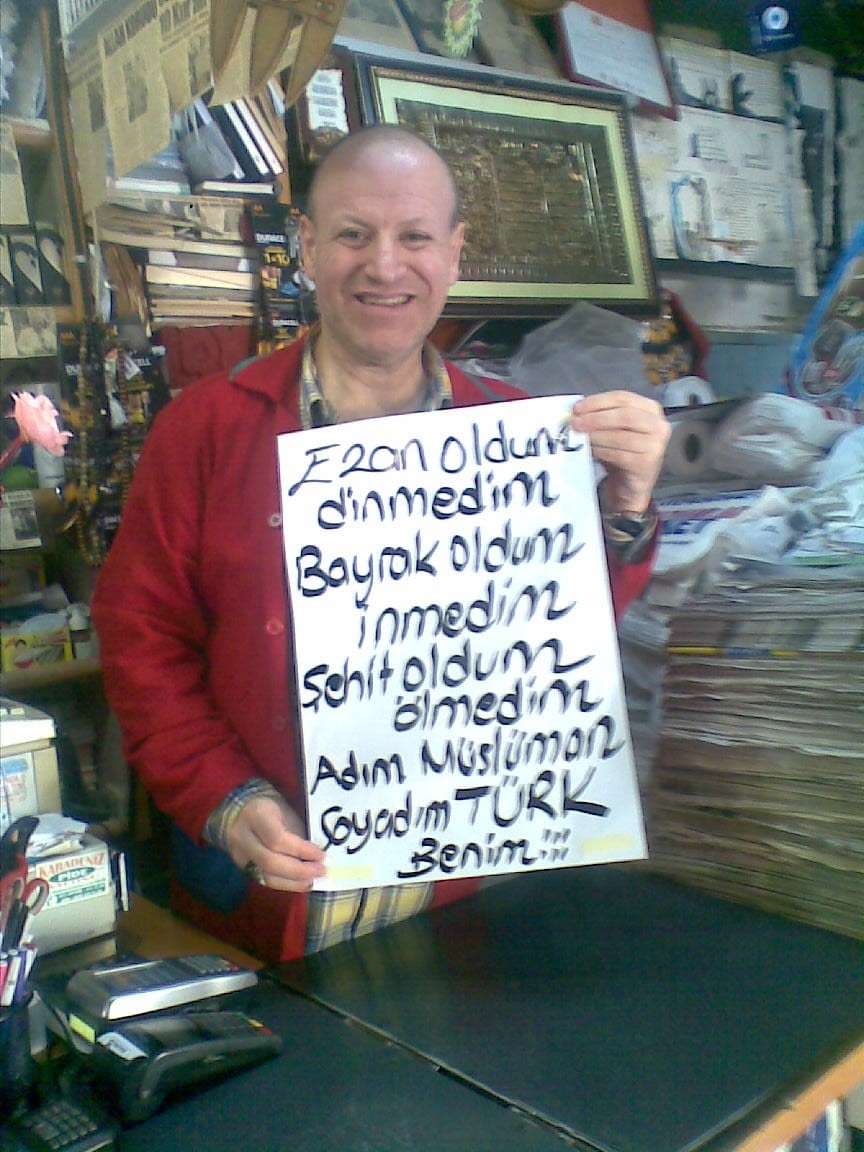 DURACELL
Ezan oldum
dinmedim
Bayrak oldum
inmedim
Şehit oldum
ölmedim
Adım Müslüman
Soyadım TÜRK
Benim!!!
KARADENİZ
PİDE